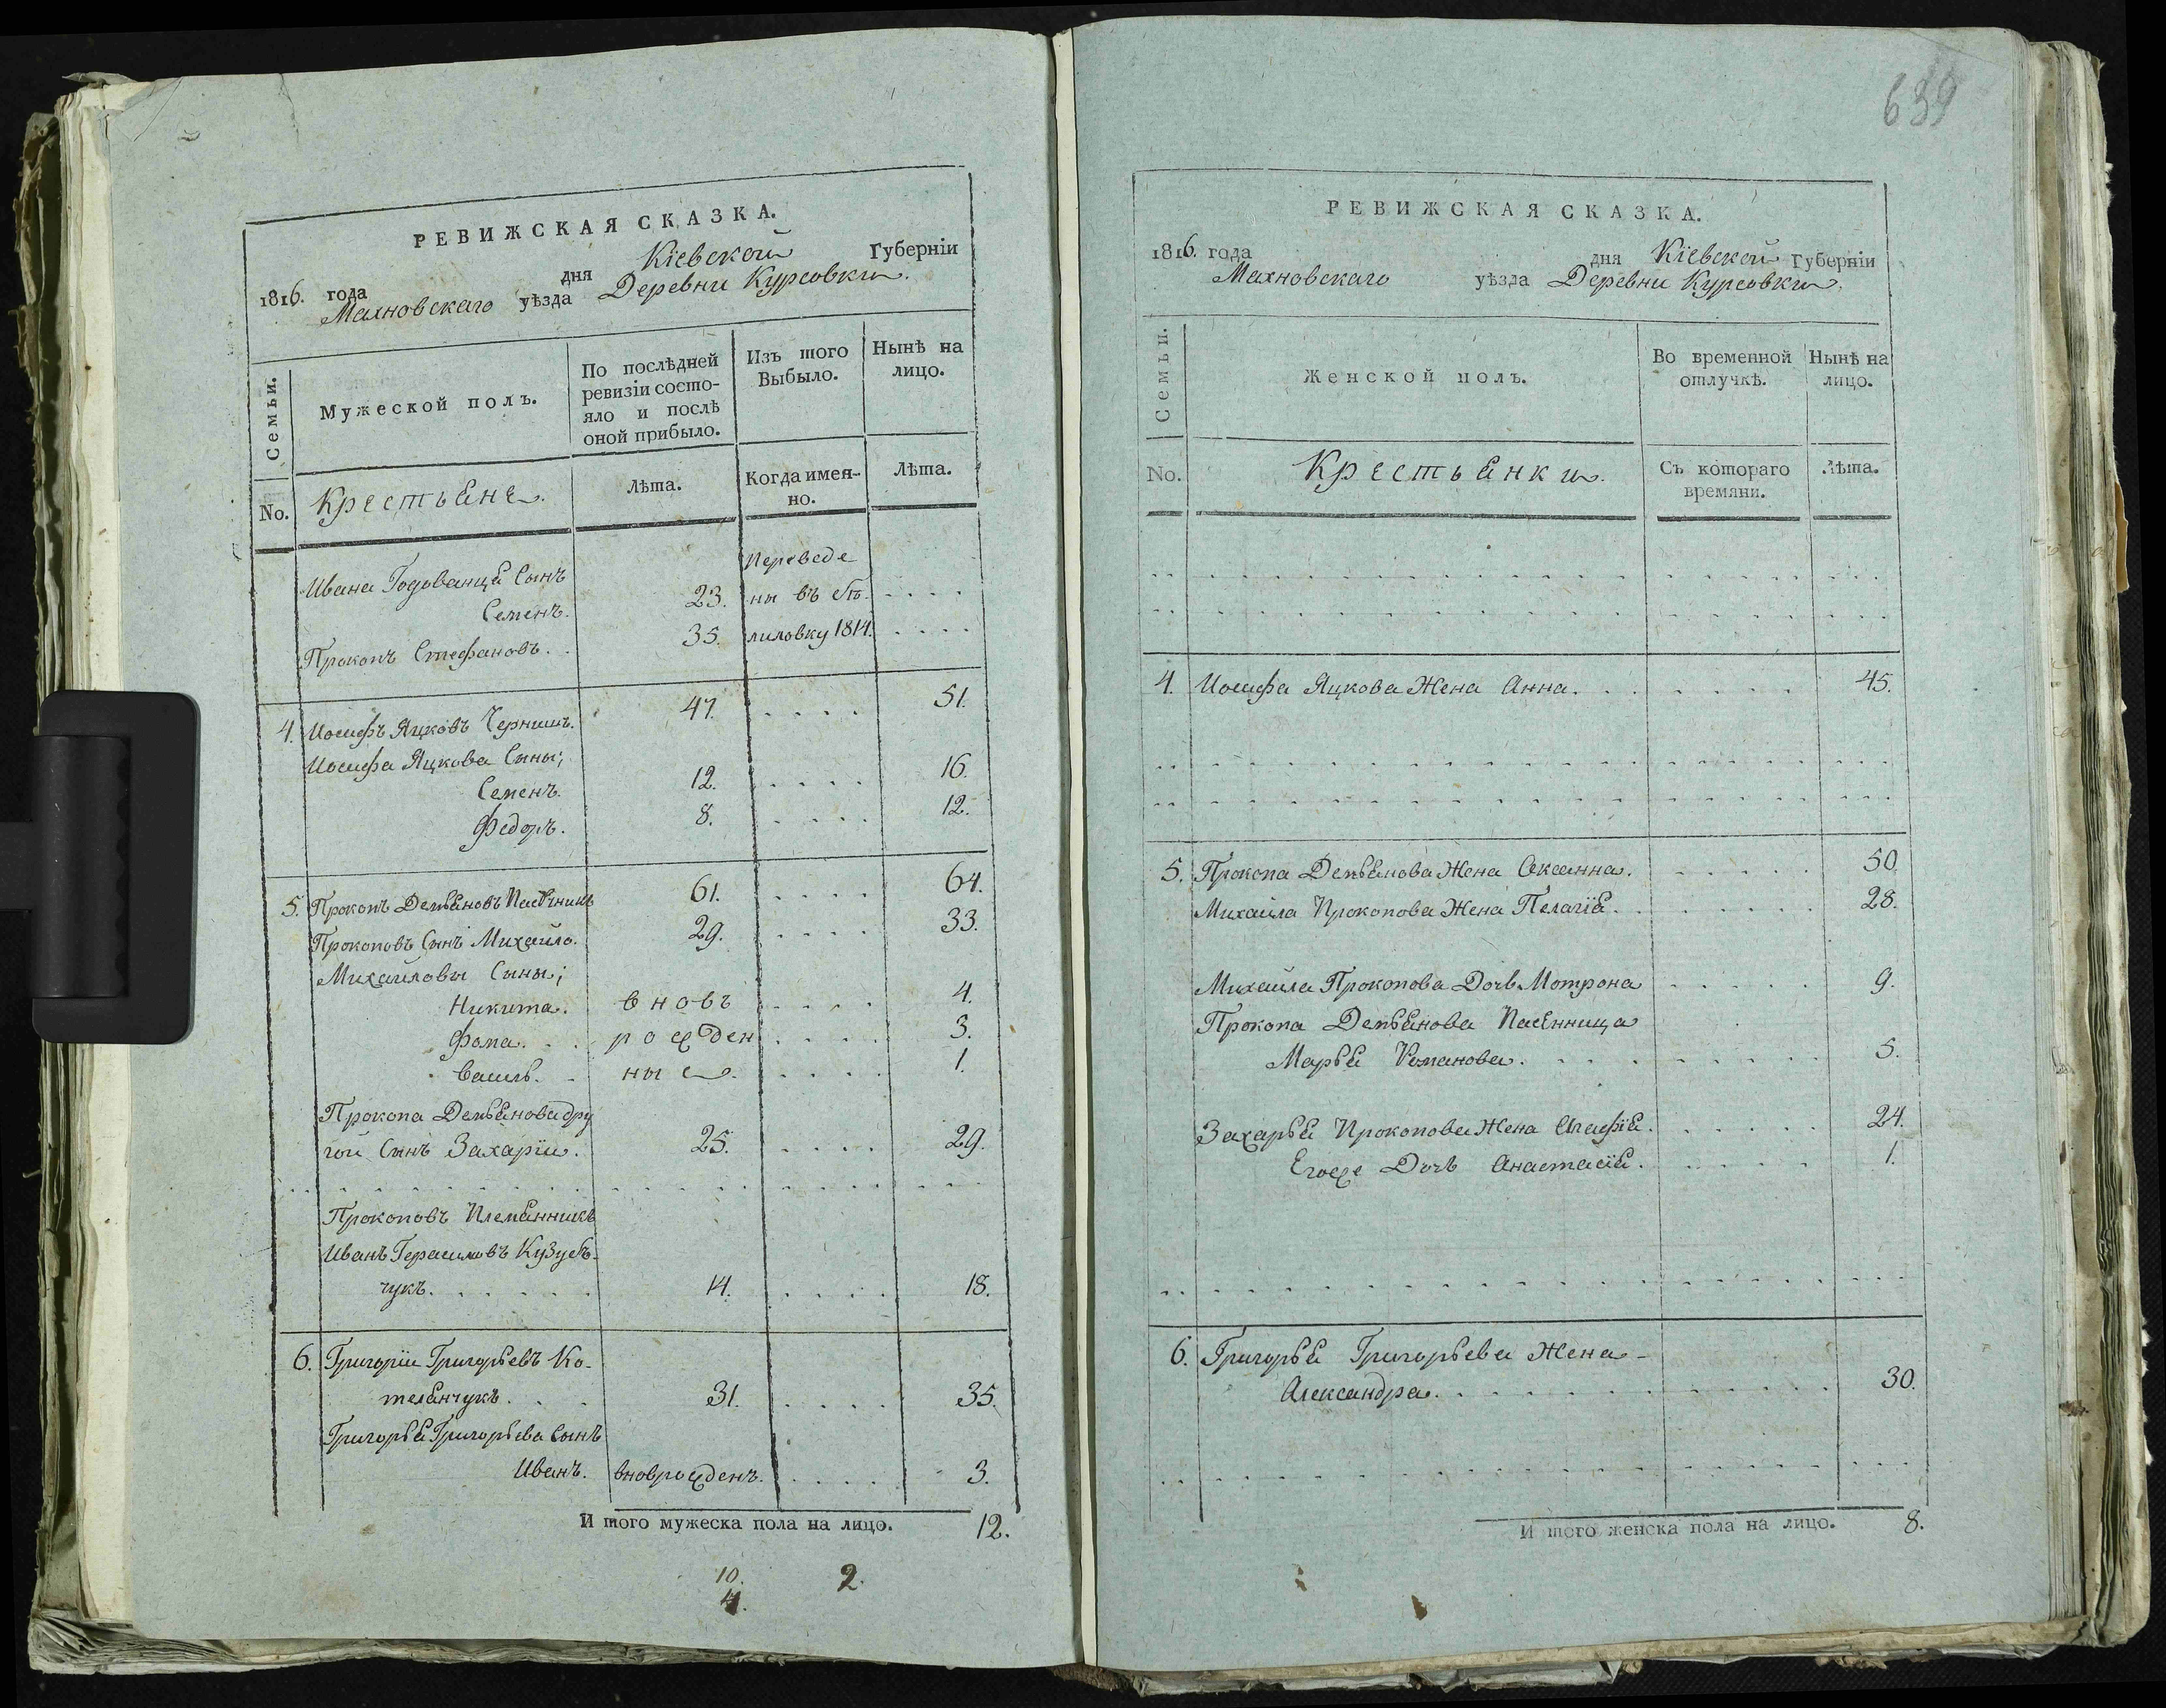 РЕВИЖСКАЯ СКАЗКА.
1816. года дня Кіевской Губерніи
Махновскаго уѣзда Деревни Курсовки.
Семьи. Мужеской полъ. По послѣдней ревизіи состо- Изъ того Выбыло. Нынѣ на лицо.
яло и послѣ оной прибыло.
No. Крестьяне. Лѣта. Когда имен- Лѣта.
но.
Переведе
Ивана Годованця Сынъ
Семенъ. 23. ны въ
Прокопъ Стефановъ. 35. лиловку 1814.
4. Иосифъ Яцковъ Чернишъ. 47. 51.
Иосифа Яцкова Сыны;
Семенъ. 12. 16.
Федоръ. 8. 12.
5. Прокопъ Демьяновъ 61. 64.
Прокоповъ Сынъ Михайло. 29. 33.
Михайловы Сыны;
Никита. вновь 4.
Фома. рожден 3.
Василь. ные. 1.
Прокопа Демьянова дру
гой Сынъ Захарій. 25. 29.
Прокоповъ Племянникъ
Иванъ Герасимовъ Кузуб-
чукъ. 14. 18.
6. Григорій Григорьевъ Ко-
телянчукъ. 31. 35.
Григорья Григорьева Сынъ
Иванъ. вноврожденъ. 3.
И того мужеска пола на лицо. 12.
10. 2.
4.
639
РЕВИЖСКАЯ СКАЗКА.
1816. года дня Кіевской Губерніи
Махновскаго уѣзда Деревни Курсовки.
Семьи. Женской полъ. Во временной отлучкѣ. Нынѣ на лицо.
No. Крестьянки. Съ котораго времяни. Лѣта.
4. Иосифа Яцкова Жена Анна. 45.
5. Прокопа Демьянова Жена Оксанна. 50.
Михайла Прокопова Жена Пелагія. 28.
Михайла Прокопова Дочь Мотрона 9.
Прокопа Демьянова
Марья Романова. 5.
Захарья Прокопова Жена Агафія. 24.
Егоже Дочь Анастасія. 1.
6. Григорья Григорьева Жена-
Александра. 30.
И того женска пола на лицо. 8.